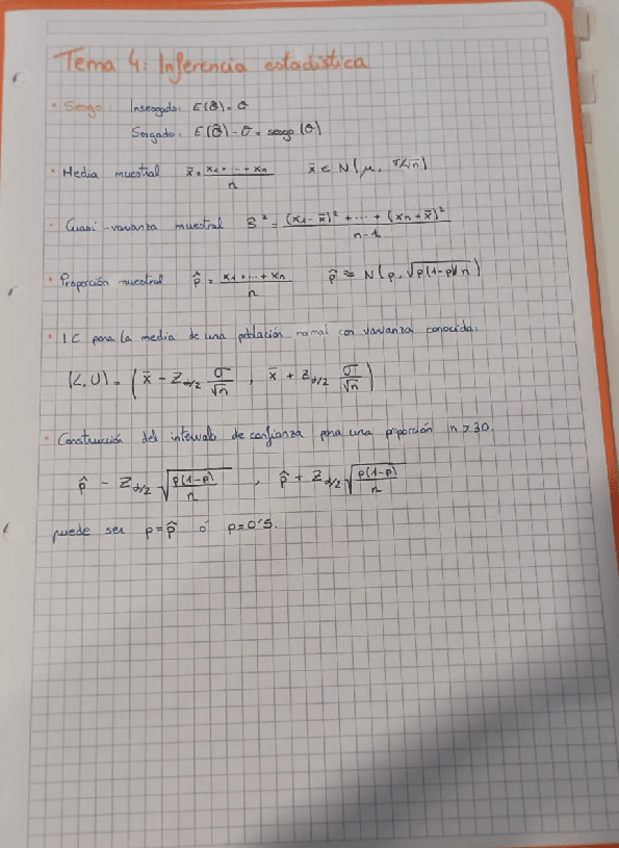 Tema 4: Inferencia estadística
· Sesgo: Insesgado: E(θ̂) = θ
Sesgado: E(θ̂) - θ = sesgo (θ)
· Media muestral x̄ = (x1 + ... + xn)/n x̄ ∈ N(μ, σ/√n)
· Cuasi-varianza muestral S² = ((x1 - x̄)² + ... + (xn - x̄)²)/(n-1)
· Proporción muestral p̂ = (x1 + ... + xn)/n p̂ ≈ N(p, √(p(1-p)/n))
· IC para la media de una población normal con varianza conocida:
(L, U) = (x̄ - Zα/2 σ/√n , x̄ + Zα/2 σ/√n)
· Construcción del intervalo de confianza para una proporción n>30.
p̂ - Zα/2 √(p(1-p)/n) , p̂ + Zα/2 √(p(1-p)/n)
puede ser p = p̂ ó p = 0'5.